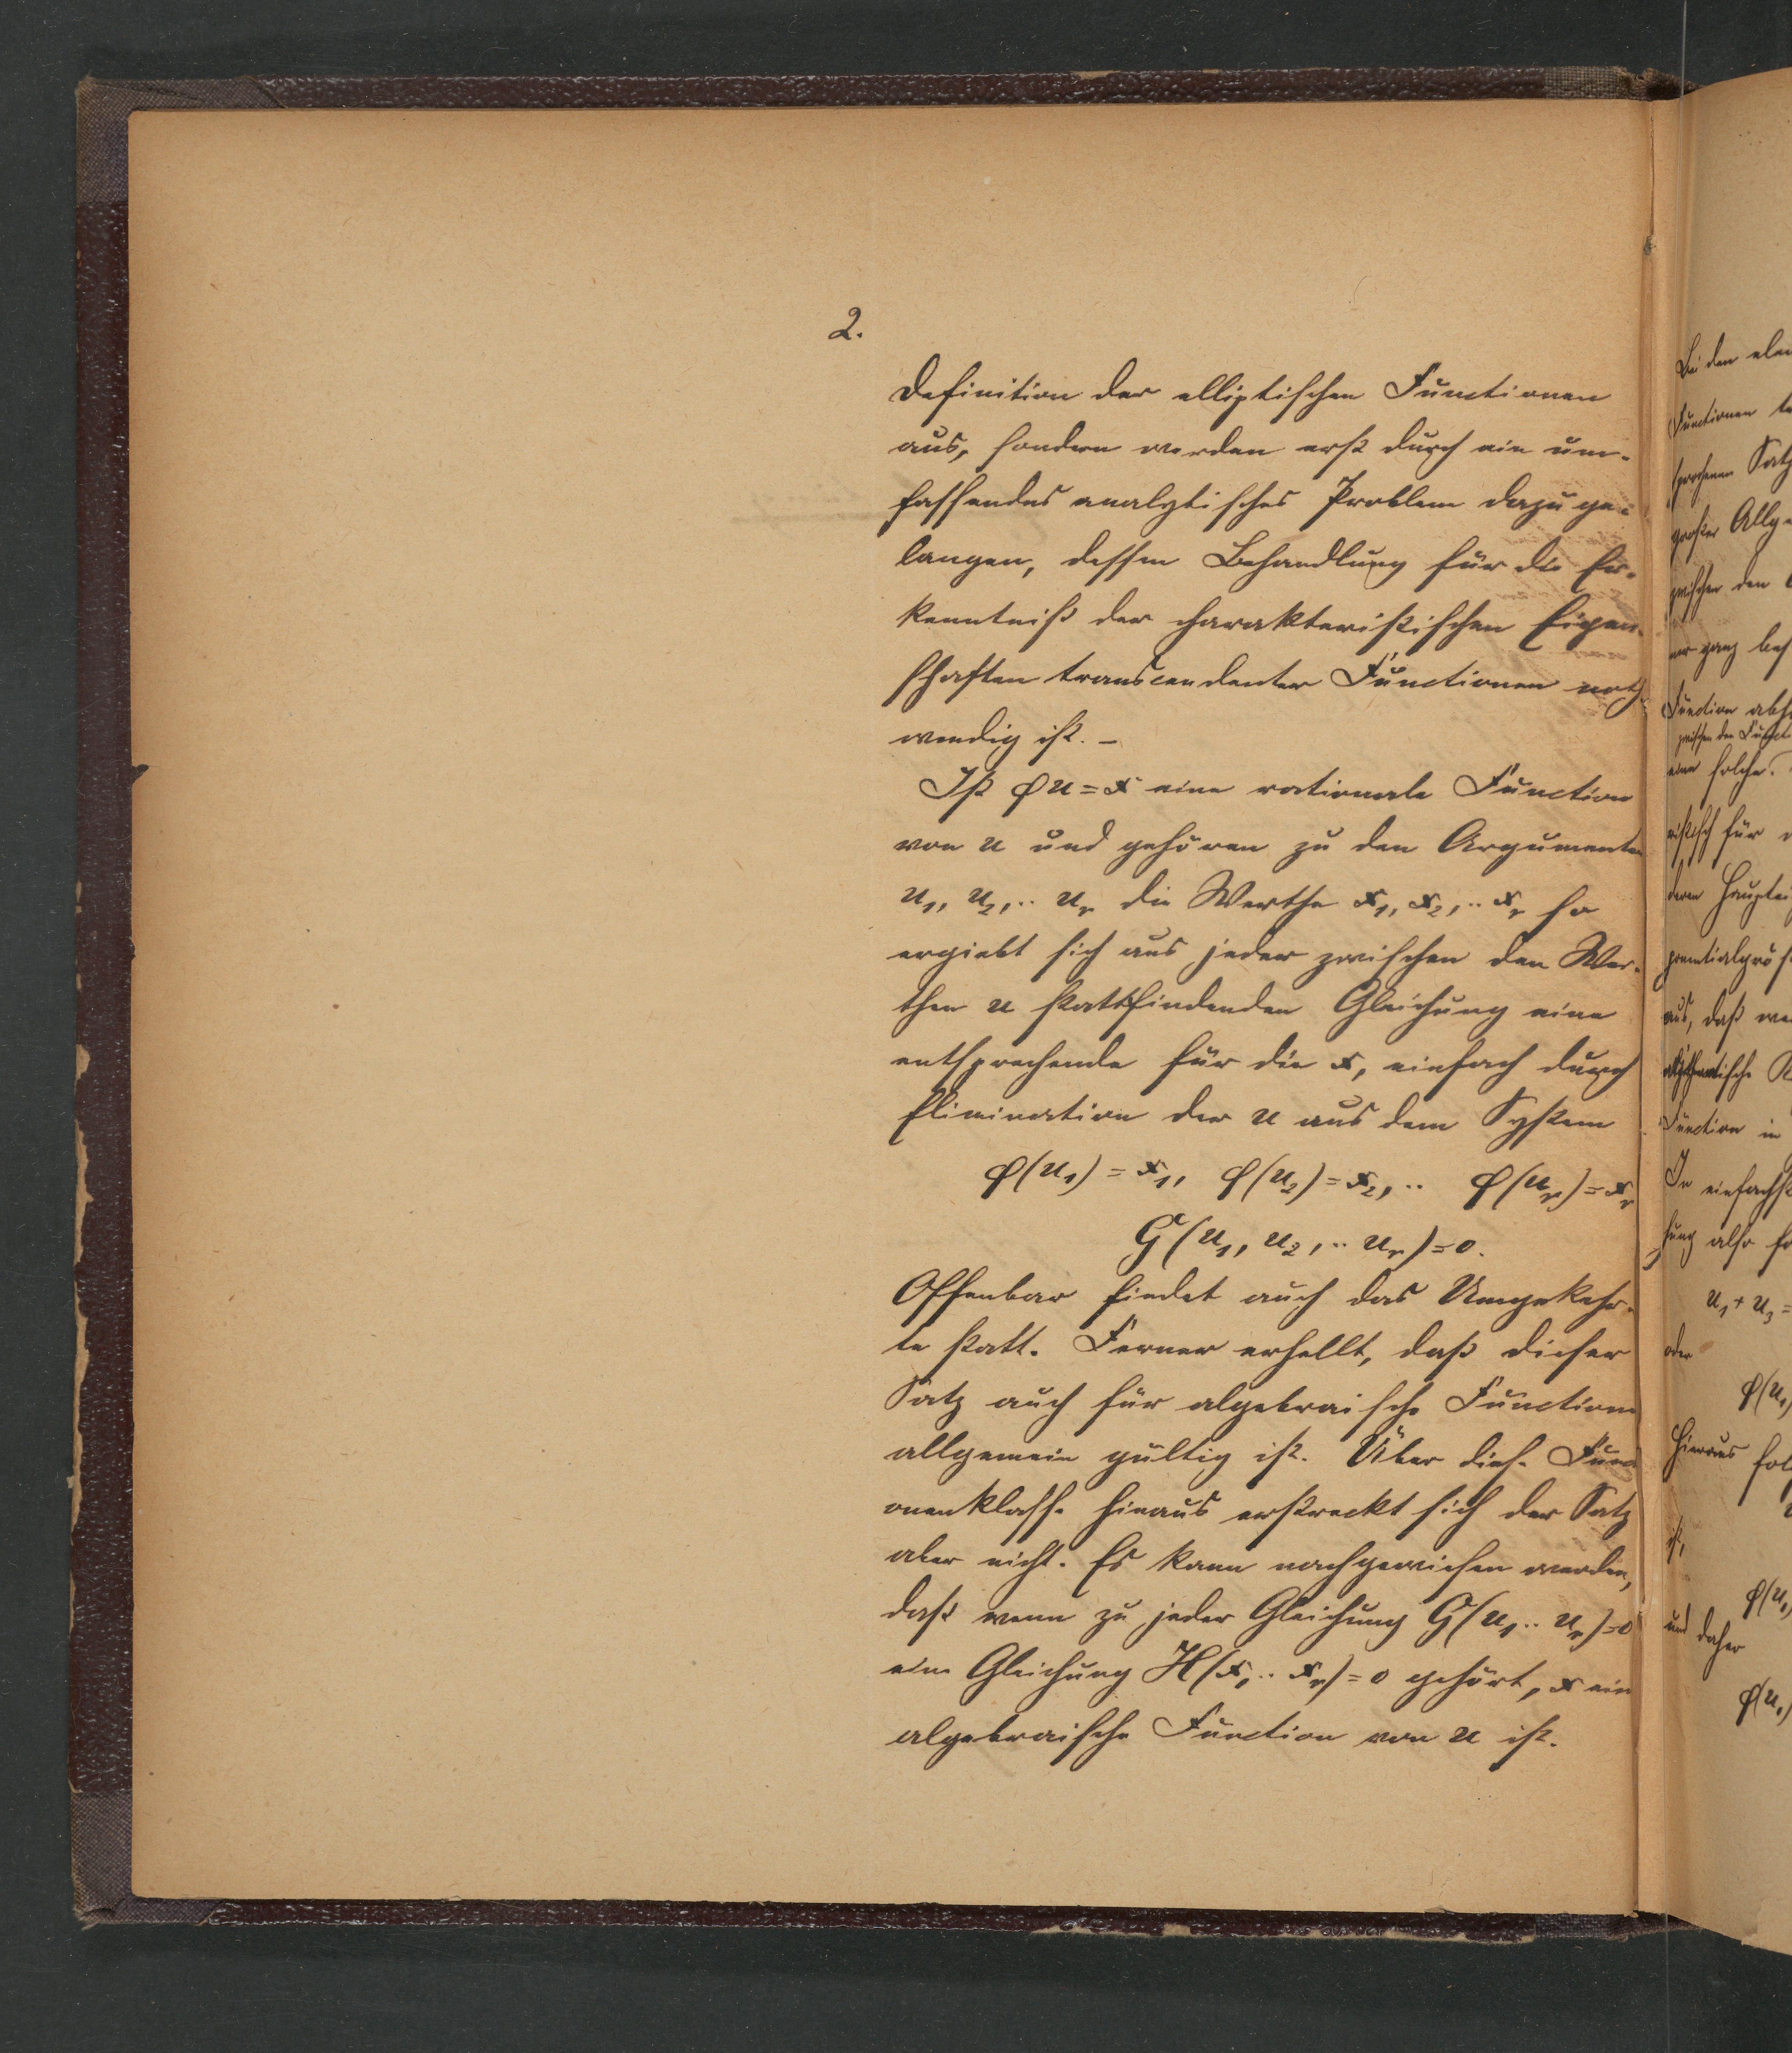 2.
Definition der elliptischen Functionen
aus, sondern werden erst durch ein um-
fassendes analytisches Problem dazu ge-
langen, dessen Behandlung für die Er-
kenntniß der charakteristischen Eigen-
schaften transcendenter Functionen noth-
wendig ist. –
Ist φu = x eine rationale Function
von u und gehören zu den Argumenten
u₁, u₂, .. uᵣ die Werthe x₁, x₂, .. xᵣ so
ergiebt sich aus jeder zwischen den Wer-
then u stattfindenden Gleichung eine
entsprechende für die x, einfach durch
Elimination der u aus dem System
φ(u₁) = x₁, φ(u₂) = x₂, .. φ(uᵣ) = xᵣ
G(u₁, u₂, .. uᵣ) = 0.
Offenbar findet auch das Umgekehr-
te statt. Ferner erhellt, daß dieser
Satz auch für algebraische Functionen
allgemein gültig ist. Über diese Functi
onenklasse hinaus erstreckt sich der Satz
aber nicht. Es kann nachgewiesen werden,
daß wenn zu jeder Gleichung G(u₁ .. uᵣ) = 0
eine Gleichung H(x₁ .. xᵣ) = 0 gehört, x eine
algebraische Function von u ist.
Bei den
Functionen
Satz
großer
zwischen den
nur ganz
Function
zwischen den
eine solche.
für
deren
aus, daß
Function in
In
also
u₁ + u₃ =
oder
φ(u₁)
Hieraus
ist,
φ(u₁)
und daher
φ(u₁)